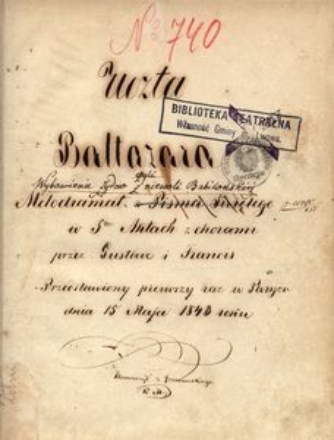 No 740
Uczta
BIBLIOTEKA TEATRALNA
Własność Gminy m. Lwowa.
Baltazara
czyli
Wybawienie Żydów z niewoli Babilońskiej
Melodramat z Pisma Świętego
w 5ciu Aktach z chórami
przez Gustaw i Francis
Przedstawiony pierwszy raz w Paryżu
dnia 15 Maja 1843 roku